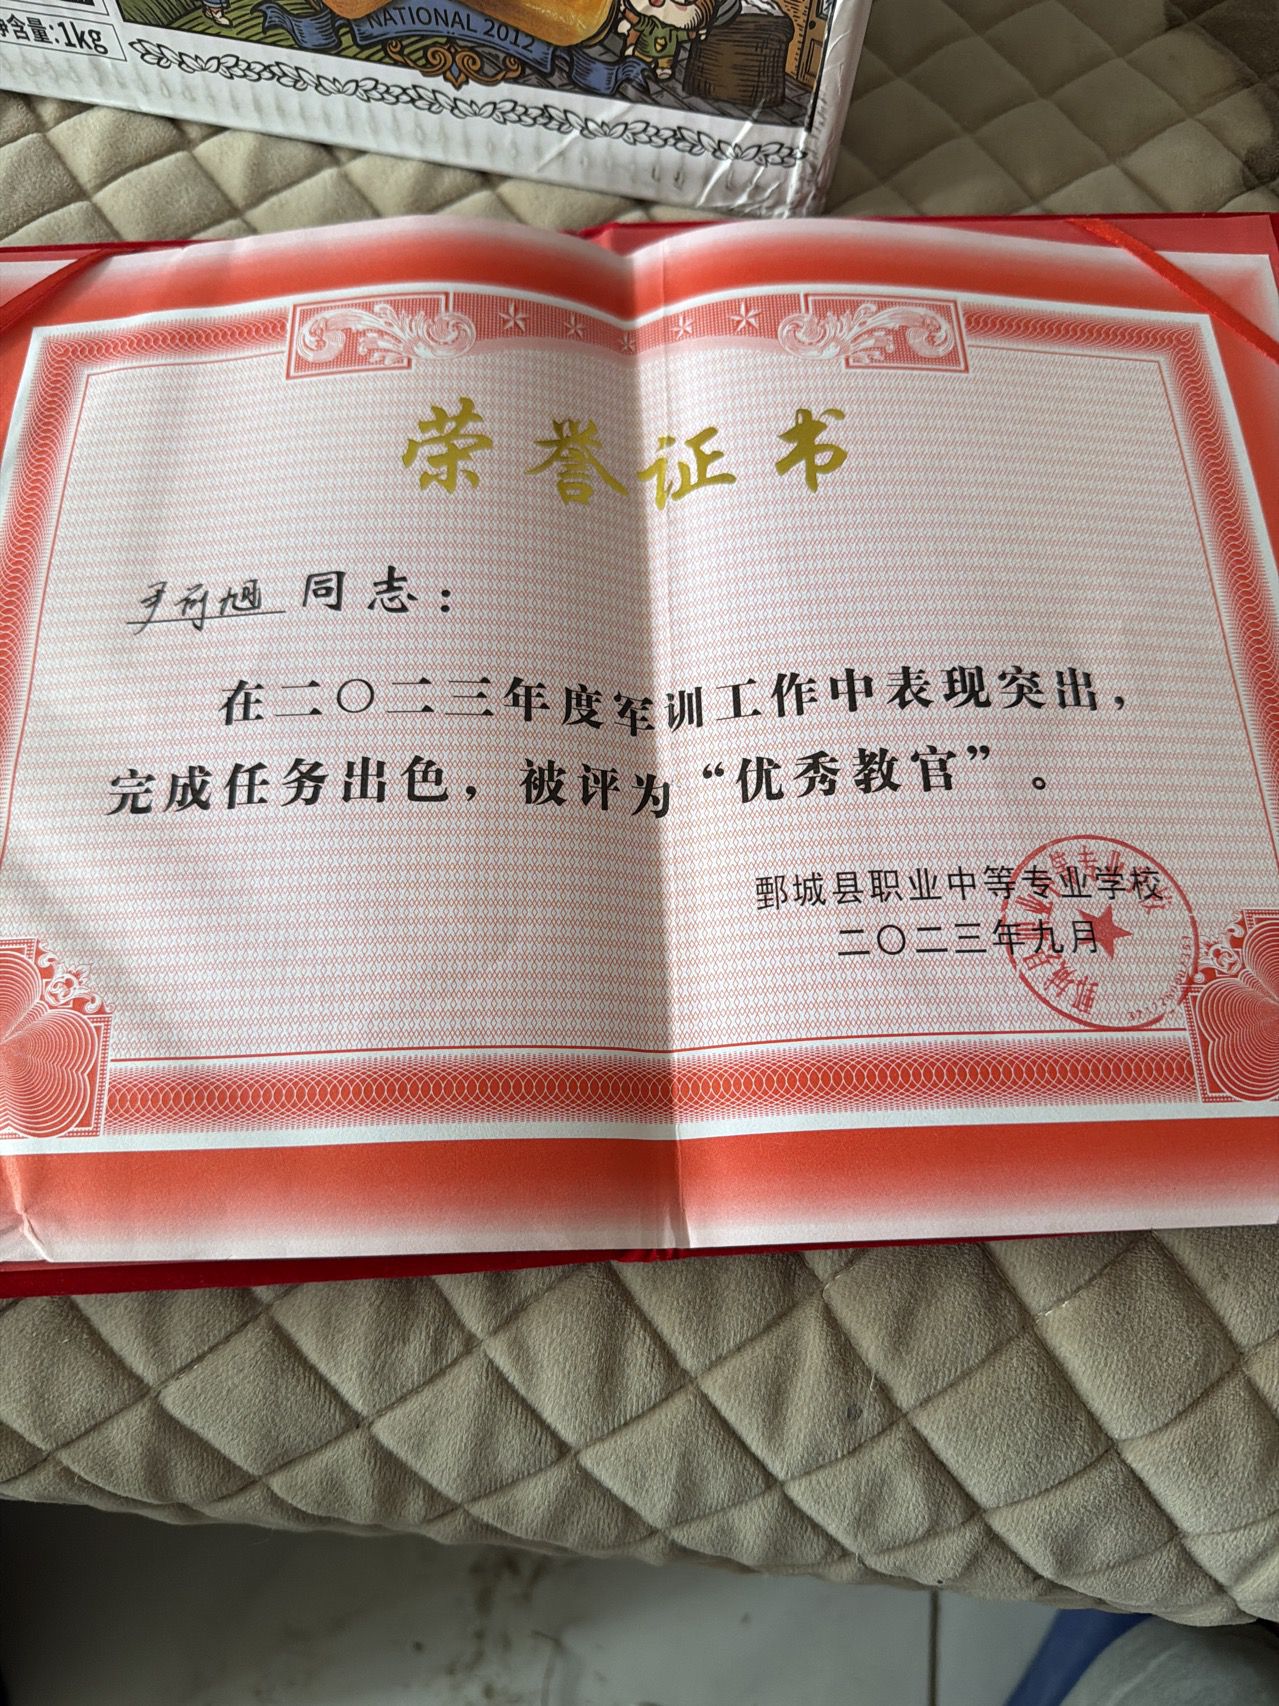 净含量:1kg
NATIONAL 2012
荣誉证书
同志：
在二〇二三年度军训工作中表现突出，
完成任务出色，被评为“优秀教官”。
鄄城县职业中等专业学校
二〇二三年九月